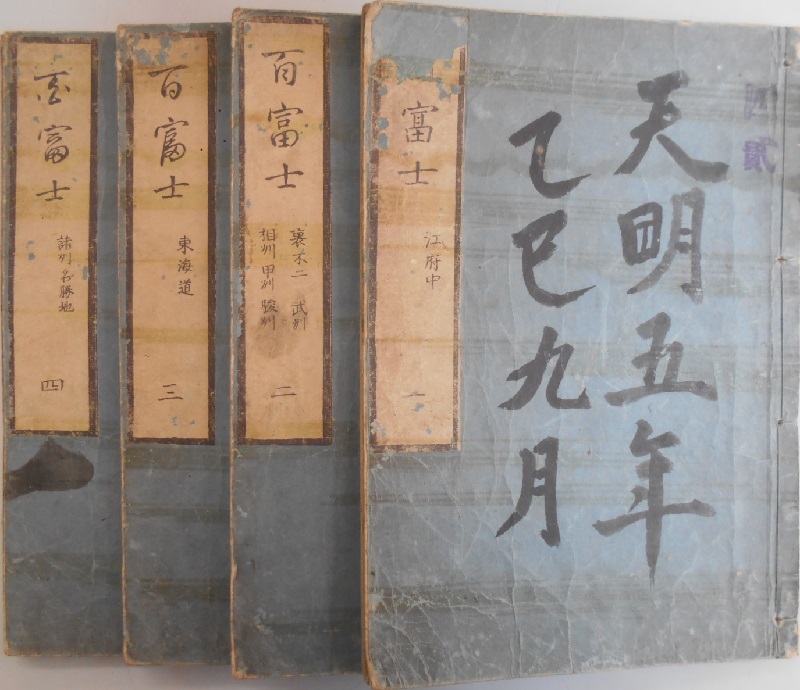 天明五年
乙巳九月
富士
江府中
一
百富士
裏不二 武州
相州 甲州 駿州
二
百富士
東海道
三
百富士
諸州名勝地
四